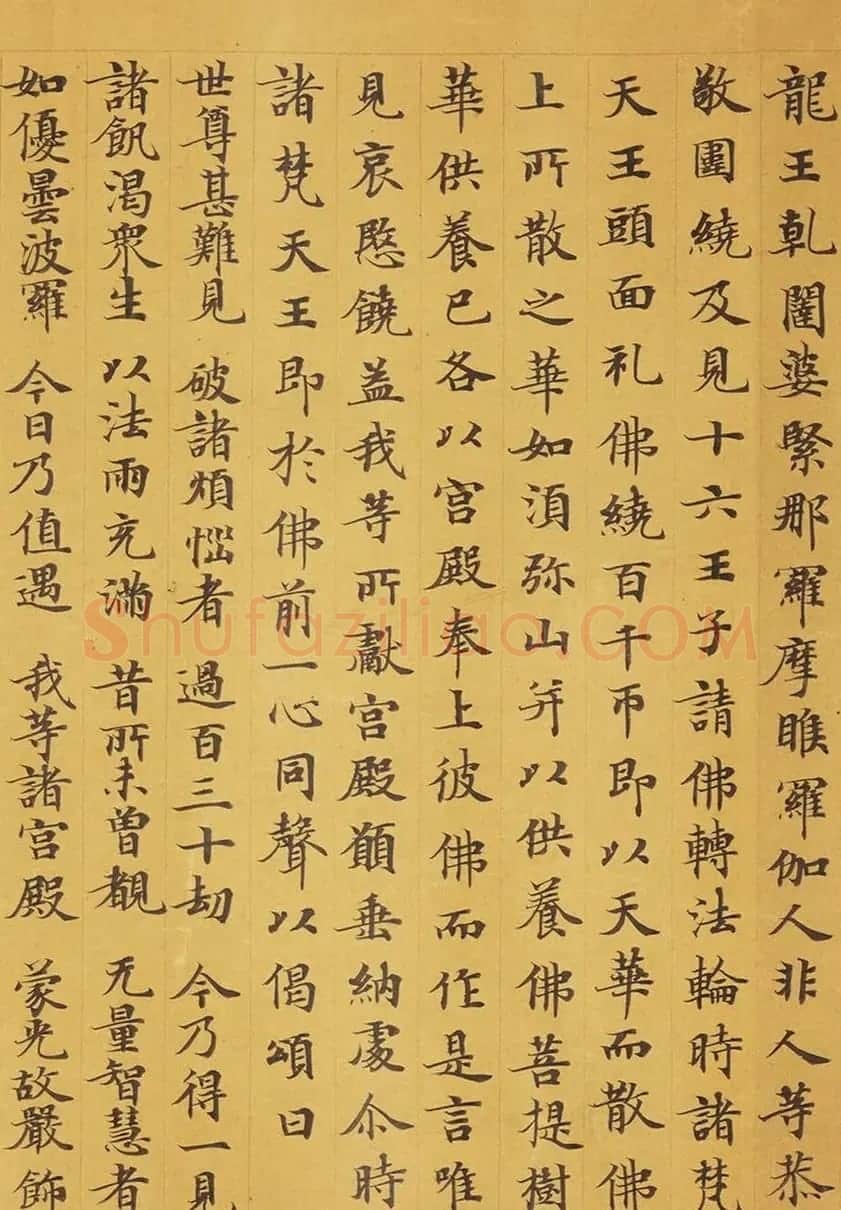 龍王乹闥婆緊那羅摩睺羅伽人非人等恭
敬圍繞及見十六王子請佛轉法輪時諸梵
天王頭面礼佛繞百千帀即以天華而散佛
上所散之華如湏弥山并以供養佛菩提樹
華供養已各以宫殿奉上彼佛而作是言唯
見哀愍饒益我等所獻宫殿願垂納處尒時
諸梵天王即於佛前一心同聲以偈頌曰
世尊甚難見 破諸煩惱者 過百三十劫 今乃得一見
諸飢渴衆生 以法雨充滿 昔所未曾覩 无量智慧者
如優曇波羅 今日乃值遇 我等諸宫殿 蒙光故嚴飾
Shufaziliao.COM